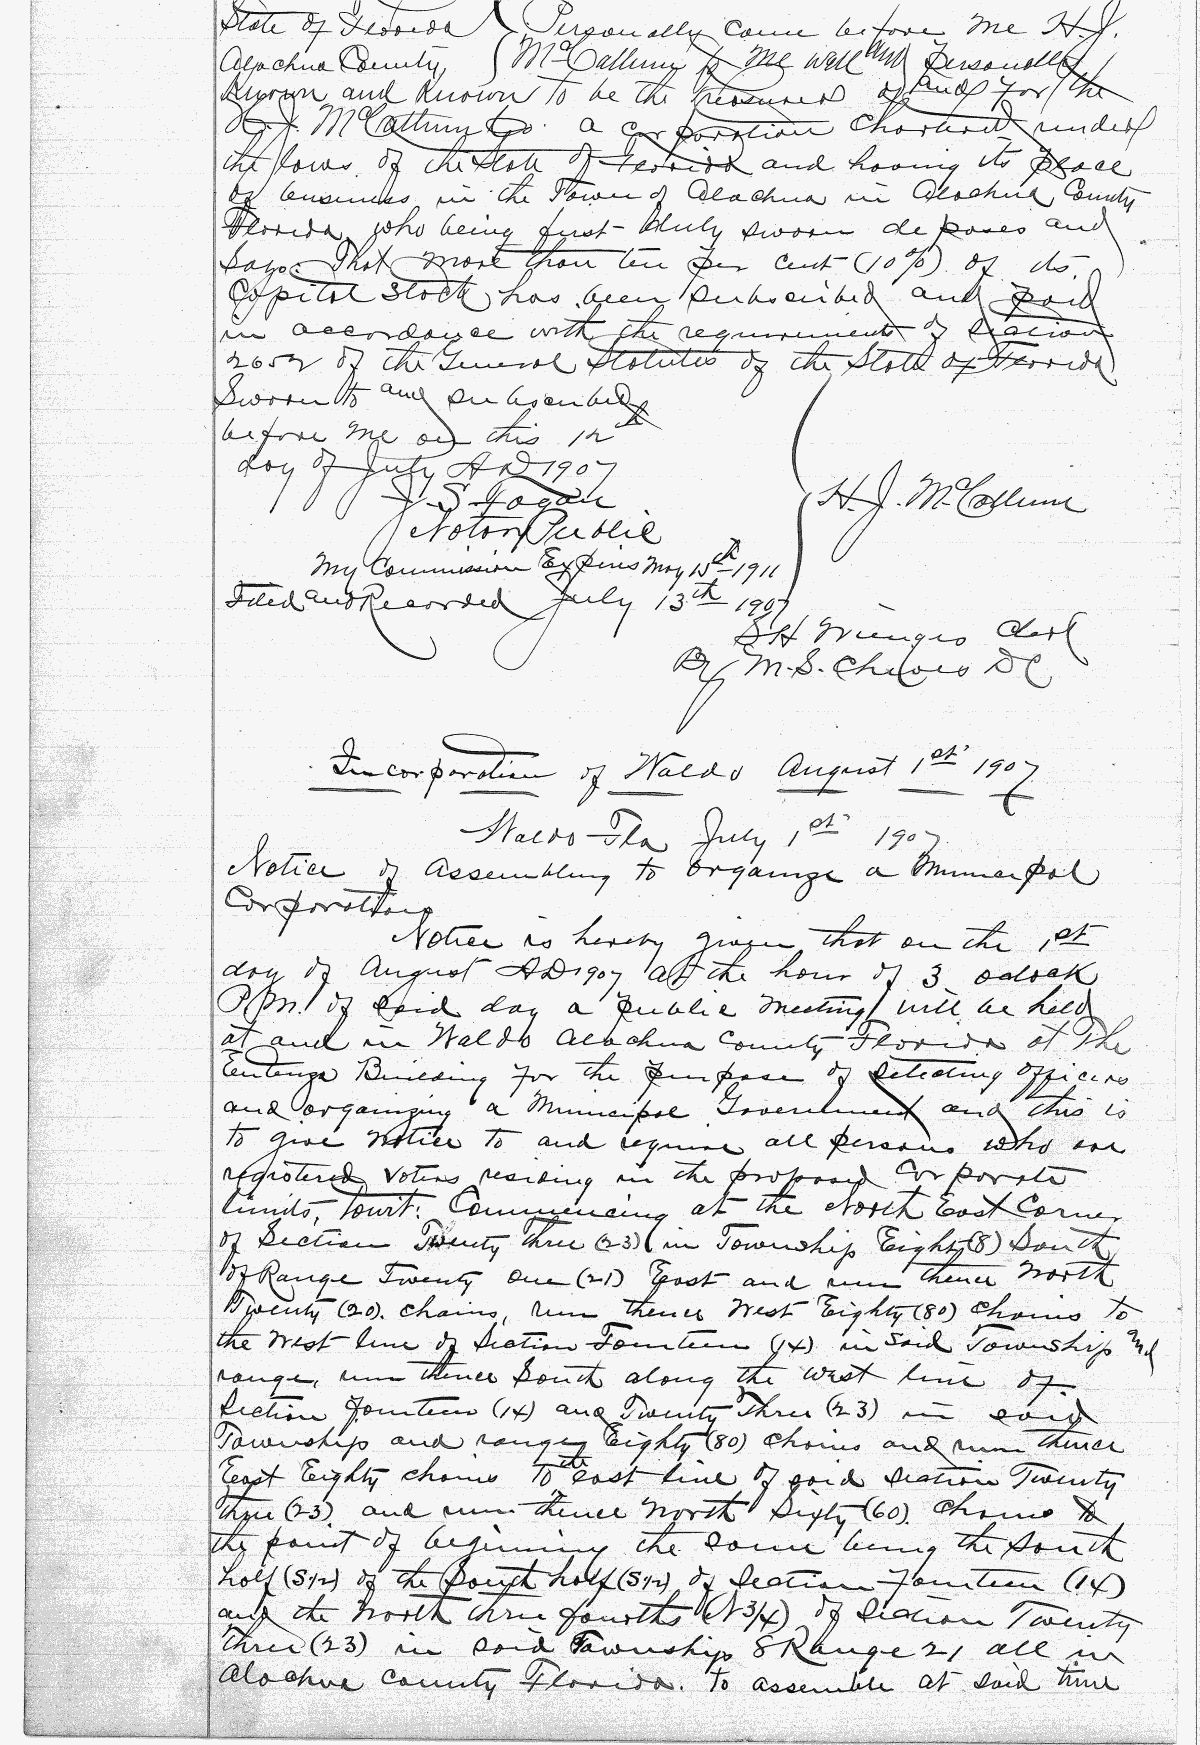 State of Florida } Personally came before me H. J.
Alachua County, } McCallum to me well and personally
Known and Known to be the treasurer of and for the
H. J. McCallum Co. a corporation chartered under
the laws of the State of Florida and having its place
of business in the Town of Alachua in Alachua County
Florida, who being first duly sworn deposes and
says: That more than ten per cent (10%) of its
Capital Stock has been subscribed and paid
in accordance with the requirements of Section
2652 of the General Statutes of the State of Florida
Sworn to and subscribed
before me on this 12th
day of July AD 1907
J. S. 
H. J. McCallum
Notary Public
My Commission Expires May 15th 1911
Filed and Recorded July 13th 1907
S H Wienges Clerk
By M. S. Cheves DC
Incorporation of Waldo August 1st 1907
Waldo Fla July 1st 1907
Notice of Assembling to organize a Municipal
Corporation
Notice is hereby given that on the 1st
day of August AD 1907 at the hour of 3 oclock
P.M. of said day a public meeting will be held
at and in Waldo Alachua County Florida at The
Building for the purpose of selecting officers
and organizing a Municipal Government and this is
to give notice to and require all persons who are
registered voters residing in the proposed Corporate
limits, towit: Commencing at the North East Corner
of Section Twenty Three (23) in Township Eight (8) South
of Range Twenty one (21) East and run thence North
Twenty (20) chains, run thence West Eighty (80) chains to
the West line of Section Fourteen (14) in said Township and
range, run thence South along the west line of
Section fourteen (14) and Twenty Three (23) in said
Township and range Eighty (80) chains and run thence
East Eighty chains to the east line of said section Twenty
three (23) and run thence North Sixty (60) chains to
the point of beginning the same being the South
half (S1/2) of the South half (S1/2) of Section Fourteen (14)
and the North three fourths (N 3/4) of Section Twenty
three (23) in said Township 8 Range 21 all in
Alachua County Florida. to assemble at said time